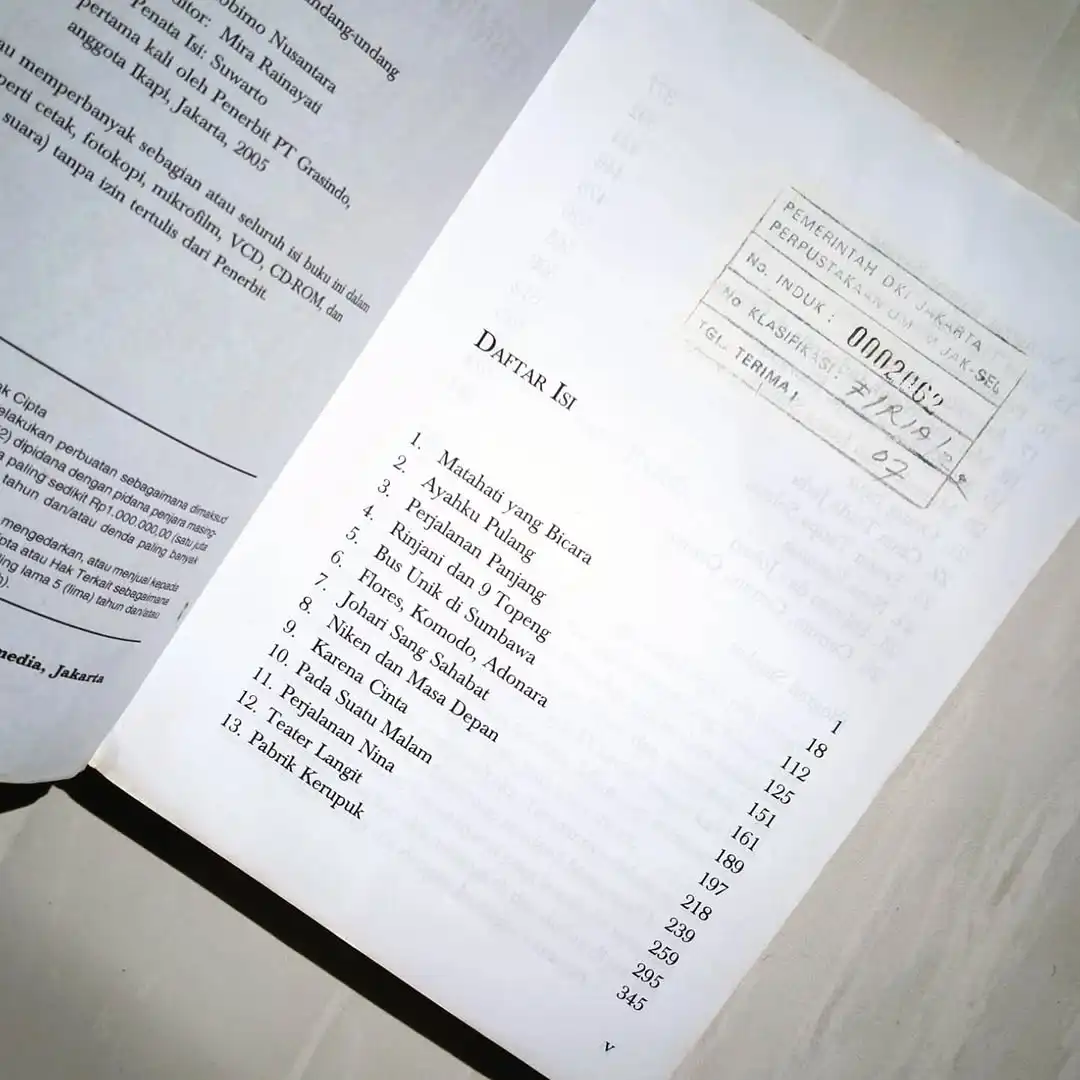 ndang-undang
obimo Nusantara
ditor: Mira Rainayati
Penata Isi: Suwarto
pertama kali oleh Penerbit PT Grasindo,
anggota Ikapi, Jakarta, 2005
au memperbanyak sebagian atau seluruh isi buku ini dalam
perti cetak, fotokopi, mikrofilm, VCD, CD-ROM, dan
suara) tanpa izin tertulis dari Penerbit.
ak Cipta
elakukan perbuatan sebagaimana dimaksud
2) dipidana dengan pidana penjara masing-
a paling sedikit Rp1.000.000,00 (satu juta
tahun dan/atau denda paling banyak
mengedarkan, atau menjual kepada
ipta atau Hak Terkait sebagaimana
ling lama 5 (lima) tahun dan/atau
).
media, Jakarta
PEMERINTAH DKI JAKARTA
PERPUSTAKAAN UM JAK-SEL
No. INDUK :
No KLASIFIKASI :
TGL. TERIMA : 07
DAFTAR ISI
1. Matahati yang Bicara 1
2. Ayahku Pulang 18
3. Perjalanan Panjang 112
4. Rinjani dan 9 Topeng 125
5. Bus Unik di Sumbawa 151
6. Flores, Komodo, Adonara 161
7. Johari Sang Sahabat 189
8. Niken dan Masa Depan 197
9. Karena Cinta 218
10. Pada Suatu Malam 239
11. Perjalanan Nina 259
12. Teater Langit 295
13. Pabrik Kerupuk 345
v